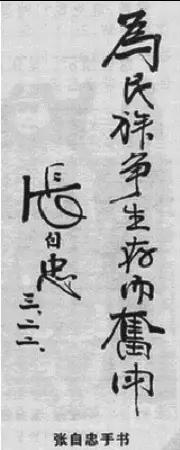 為民族争生存而奮鬥
張自忠
三、二二、
张自忠手书